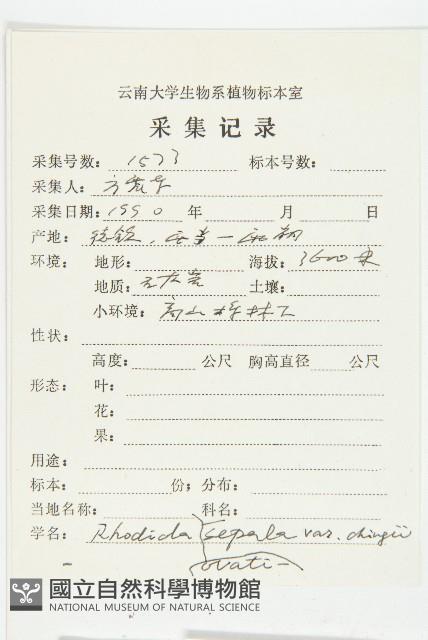 云南大学生物系植物标本室
采集记录
采集号数： 1573 标本号数：
采集人：
采集日期： 1990 年 月 日
产地： 德钦，
环境： 地形： 海拔： 3600米
地质： 石灰岩 土壤：
小环境： 高山栎林下
性状：
高度： 公尺 胸高直径 公尺
形态： 叶：
花：
果：
用途：
标本： 份；分布：
当地名称： 科名：
学名： sepala var. chingii
ovati-
國立自然科學博物館
NATIONAL MUSEUM OF NATURAL SCIENCE